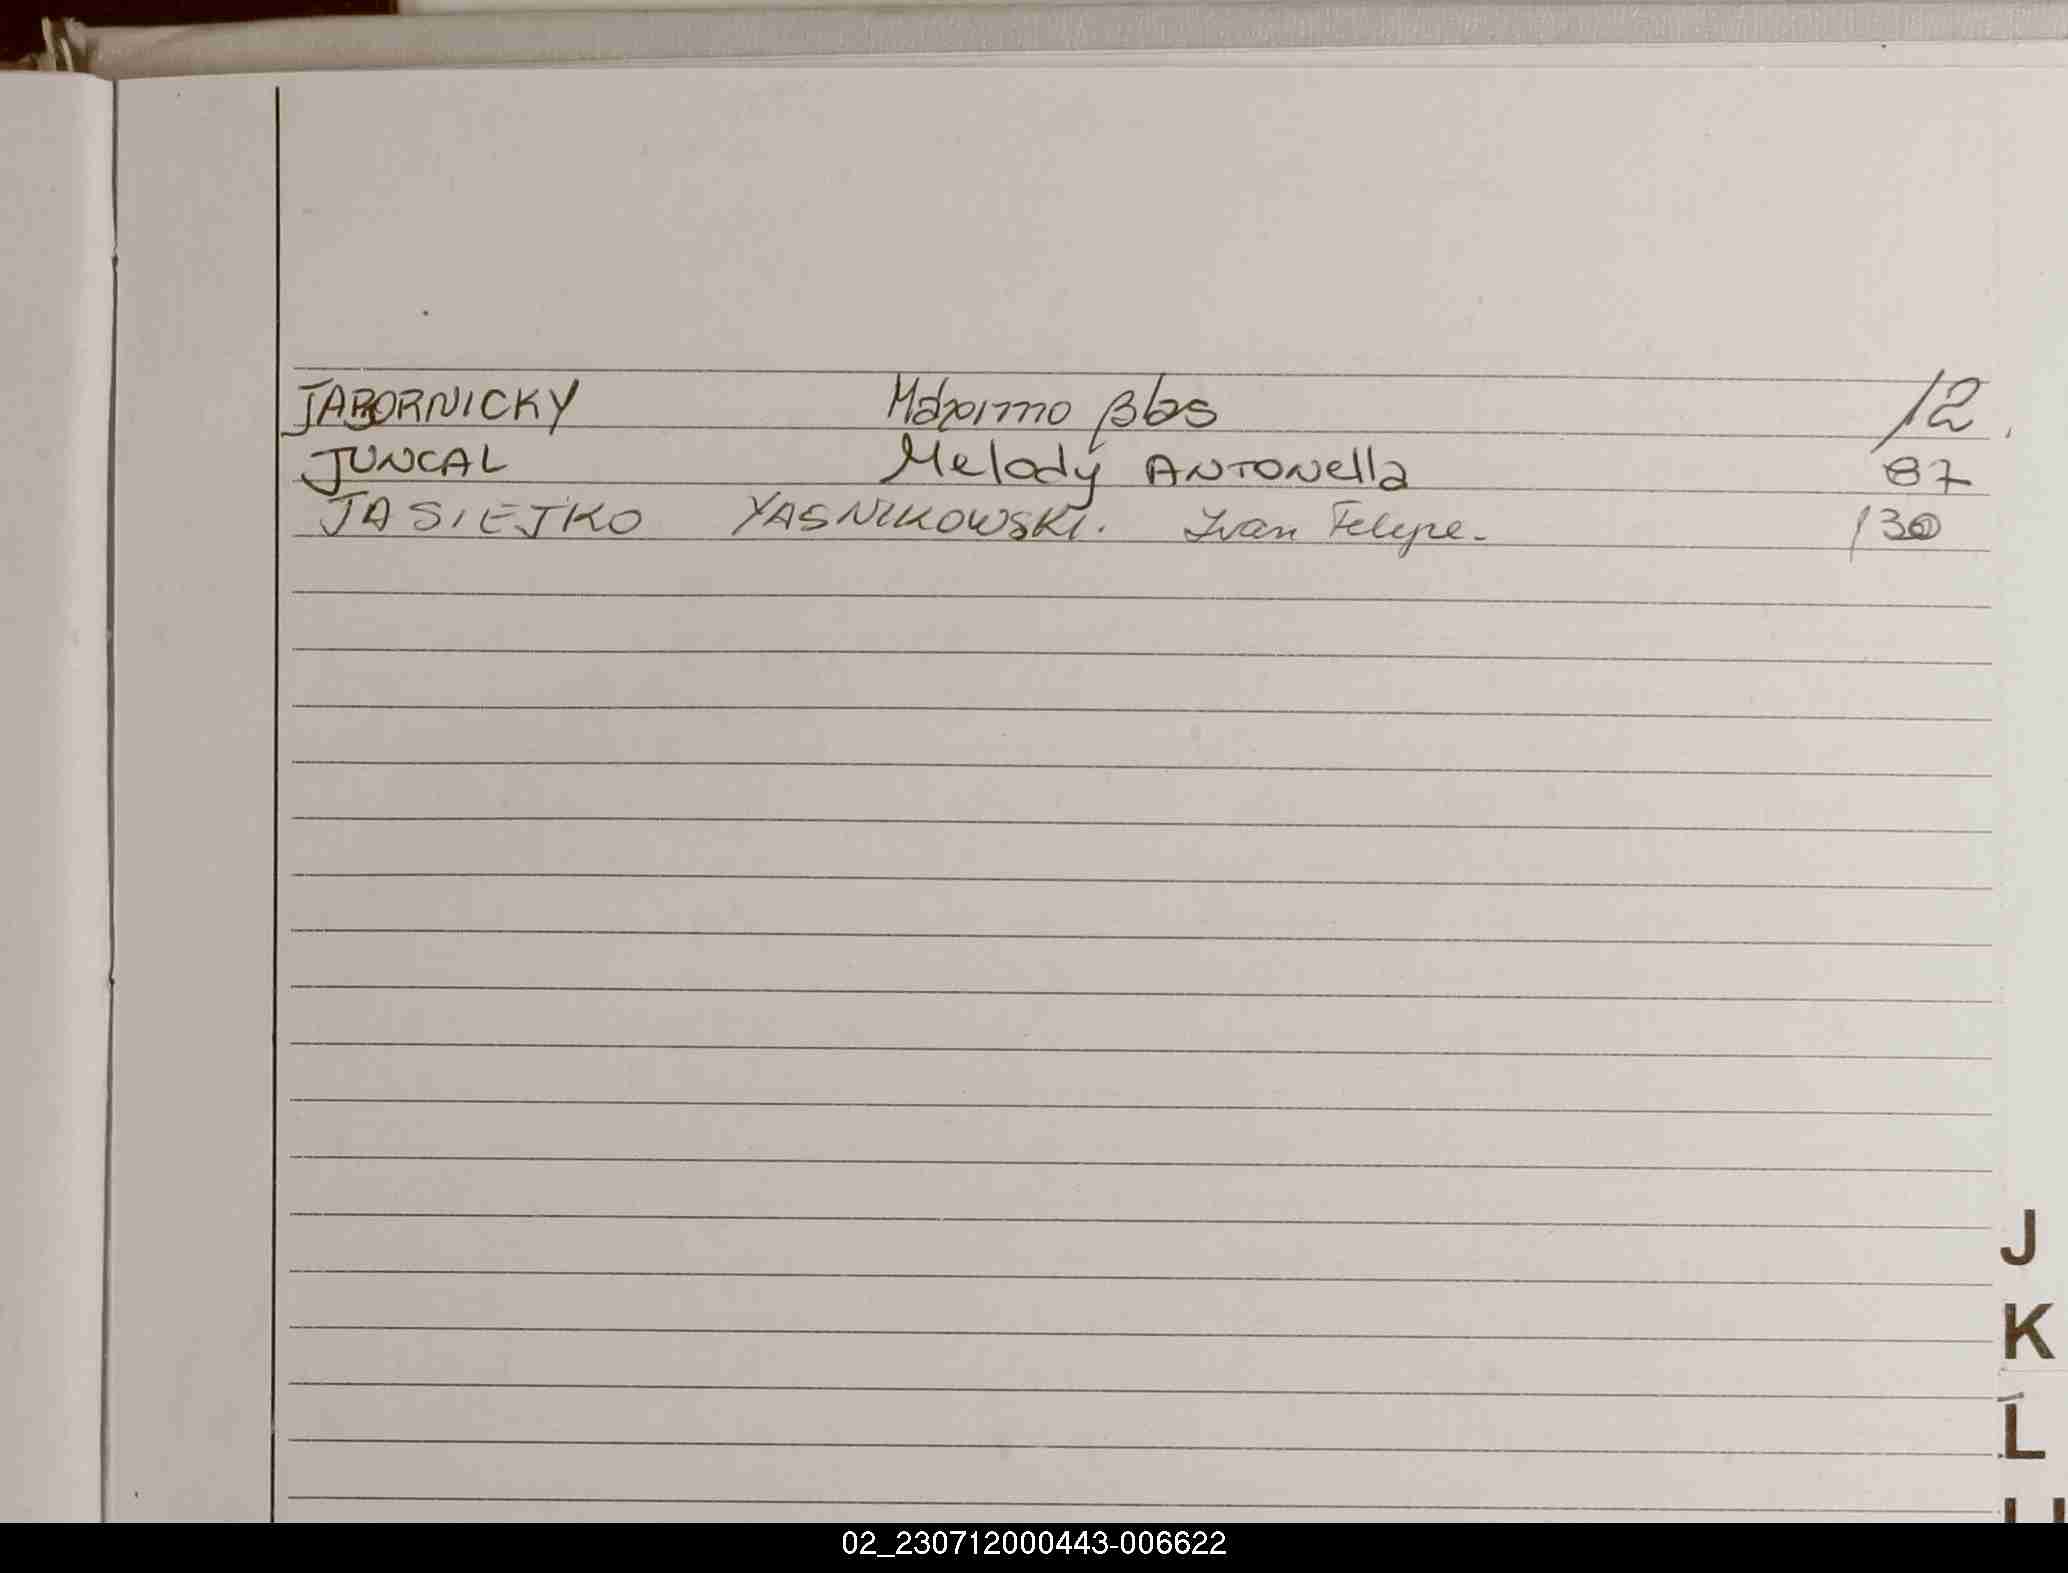 JABORNICKY Máximo Blas 12
JUNCAL Melody ANTONella 87
JASIEJKO YASNIKOWSKI. Ivan Felipe. 130
J
K
L
02_230712000443-006622